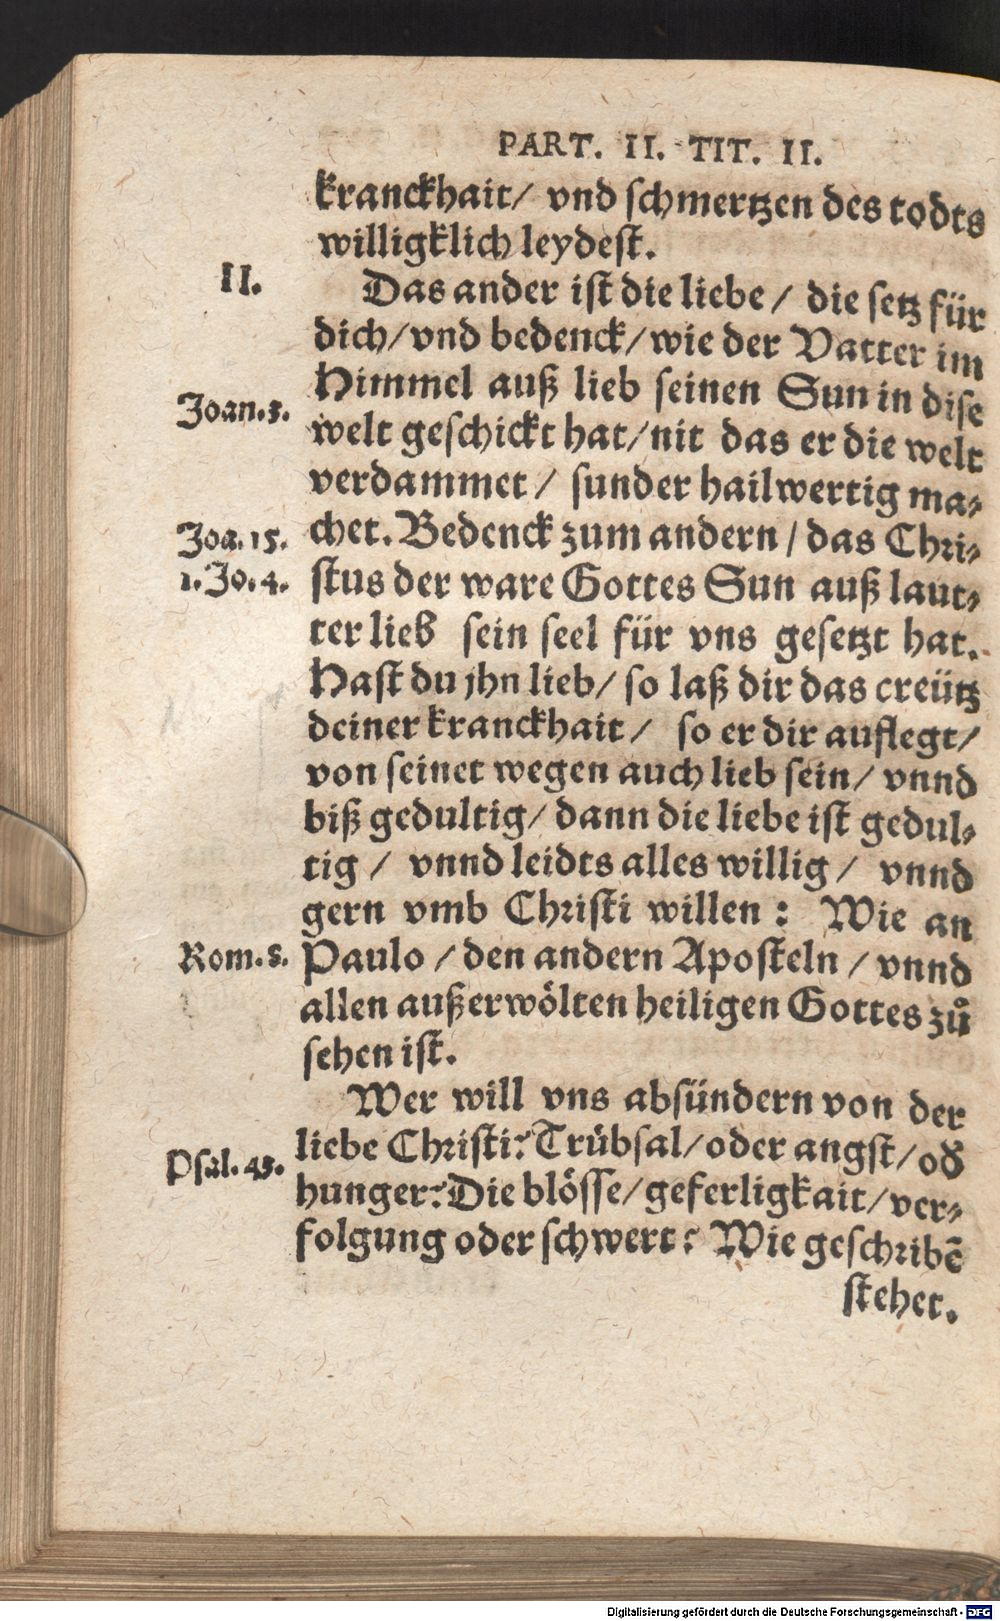 PART. II. TIT. II.
kranckhait/ vnd schmertzen des todts
willigklich leydest.
II.
Das ander ist die liebe/ die setz für
dich/ vnd bedenck/ wie der Vatter im
Himmel auß lieb seinen Sun in dise
Joan.3.
welt geschickt hat/ nit das er die welt
verdammet/ sunder hailwertig ma⸗
chet. Bedenck zum andern/ das Chri⸗
Joa.15.
1.Jo.4.
stus der ware Gottes Sun auß laut⸗
ter lieb sein seel für vns gesetzt hat.
Hast du jhn lieb/ so laß dir das creütz
deiner kranckhait/ so er dir auflegt/
von seinet wegen auch lieb sein/ vnnd
biß gedultig/ dann die liebe ist gedul⸗
tig/ vnnd leidts alles willig/ vnnd
gern vmb Christi willen: Wie an
Rom.8.
Paulo/ den andern Aposteln/ vnnd
allen außerwölten heiligen Gottes zů
sehen ist.
Wer will vns absündern von der
liebe Christi? Trübsal/ oder angst/ oď
Psal.43.
hunger? Die blösse/ geferligkait/ ver⸗
folgung oder schwert? Wie geschribē
stehet.
Digitalisierung gefördert durch die Deutsche Forschungsgemeinschaft - DFG